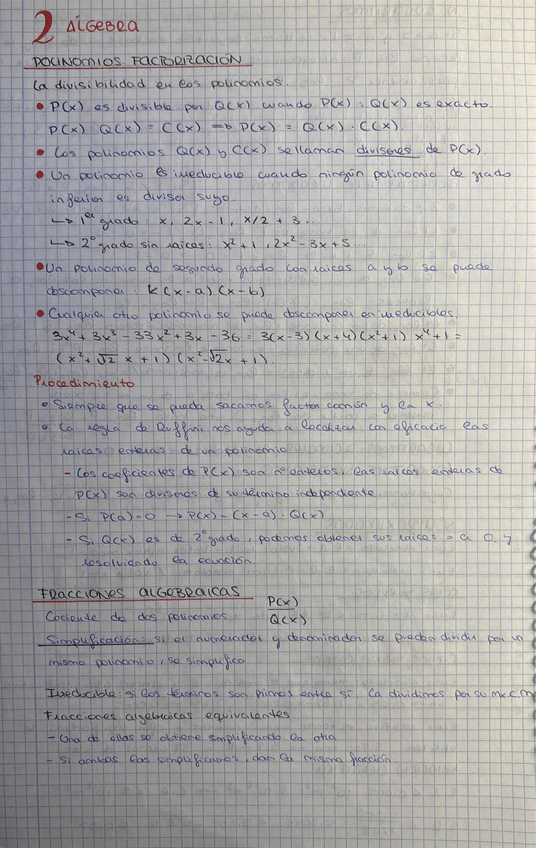 2 ÁLGEBRA
POLINOMIOS. FACTORIZACIÓN
La divisibilidad en los polinomios.
• P(x) es divisible por Q(x) cuando P(x) : Q(x) es exacto.
P(x) : Q(x) = C(x) => P(x) = Q(x) · C(x).
• Los polinomios Q(x) y C(x) se llaman divisores de P(x).
• Un polinomio es irreducible cuando ningún polinomio de grado
inferior es divisor suyo.
↳ 1er grado: x, 2x - 1, x/2 + 3 ...
↳ 2º grado sin raices: x² + 1, 2x² - 3x + 5 ...
• Un polinomio de segundo grado con raices a y b se puede
descomponer: k(x-a)(x-b)
• Cualquier otro polinomio se puede descomponer en irreducibles.
3x⁴ + 3x³ - 33x² + 3x - 36 = 3(x-3)(x+4)(x²+1) x⁴+1 =
(x² + √2 x + 1)(x² - √2x + 1).
Procedimiento
• Siempre que se pueda sacamos factor común y la x.
• La regla de Ruffini nos ayuda a localizar con eficacia las
raices enteras de un polinomio
- Los coeficientes de P(x) son nº enteros, las raices enteras de
P(x) son divisores de su término independiente
- Si P(a) = 0 → P(x) = (x-a) · Q(x)
- Si Q(x) es de 2º grado, podemos obtener sus raices = a 0, y
resolviendo la ecuación.
FRACCIONES ALGEBRAICAS
Cociente de dos polinomios P(x)/Q(x)
Simplificación: si el numerador y denominador se pueden dividir por un
mismo polinomio, se simplifica
Irreducible: si los términos son primos entre sí. La dividimos por su
Fracciones algebraicas equivalentes
- Una de ellas se obtiene simplificando la otra
- Si ambas las simplificamos, dan la misma fracción.